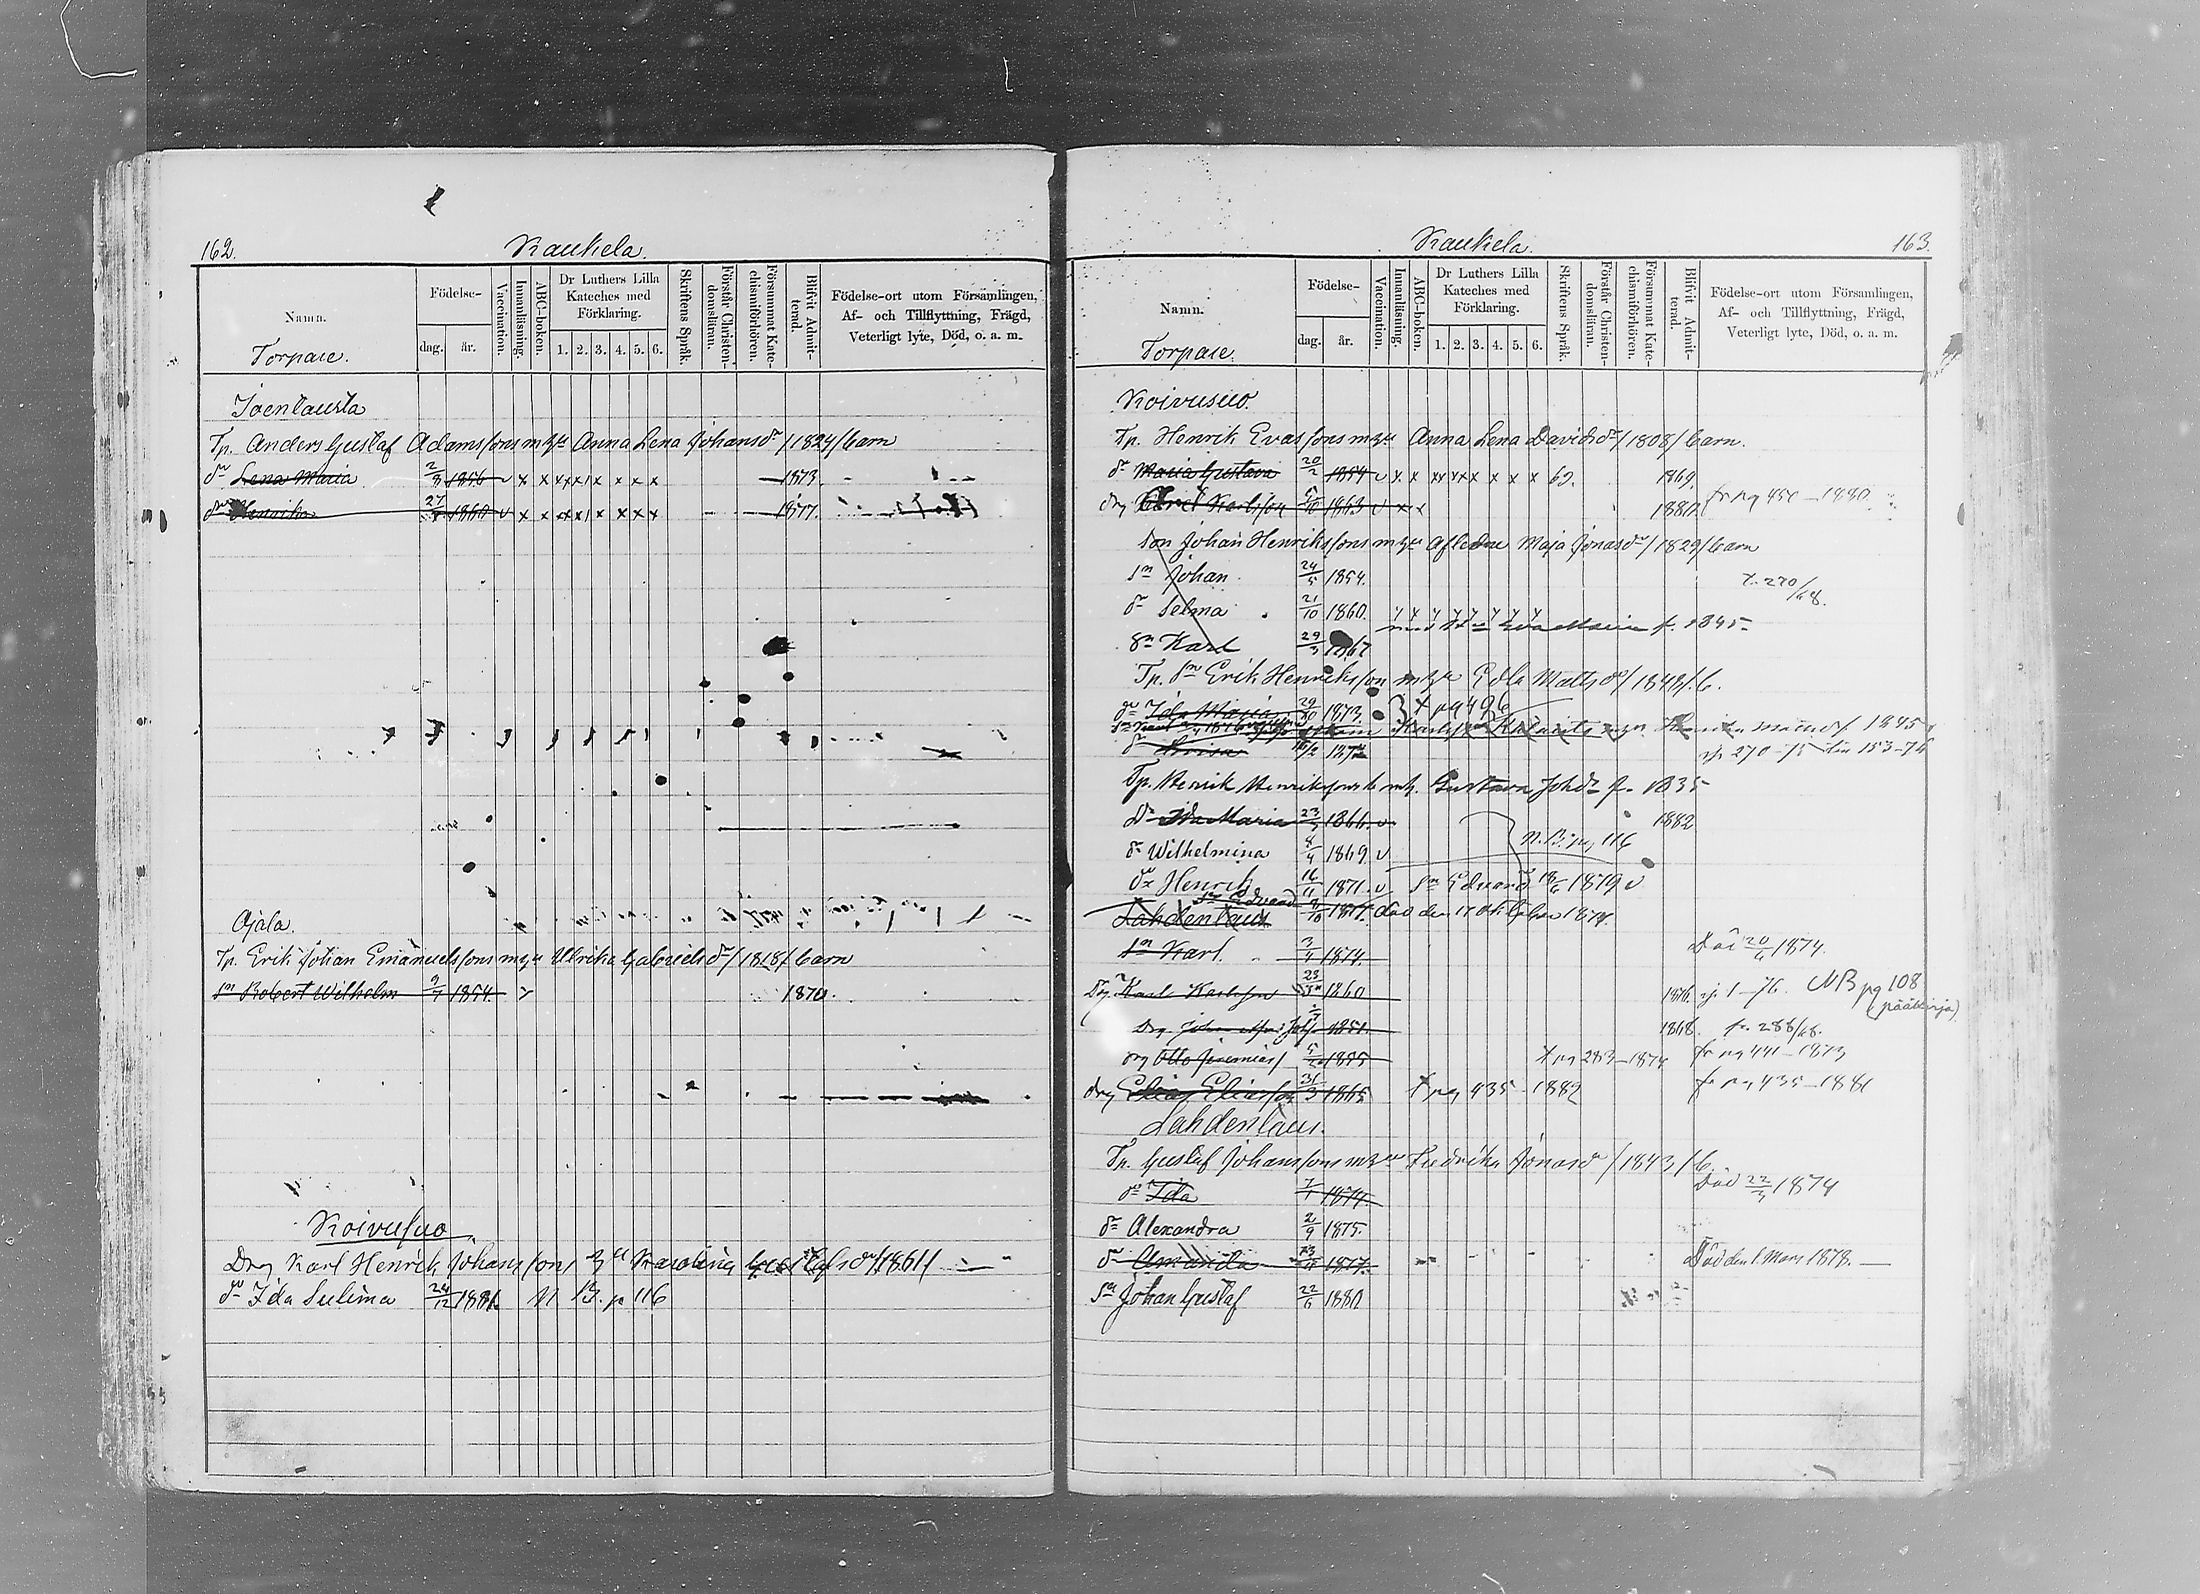 162.
Kaukela.
Namn.
Torpare.
Födelse-
dag.
år.
Vaccination.
Innanläsning.
ABC-boken.
Dr Luthers Lilla
Kateches med
Förklaring.
1. 2. 3. 4. 5. 6.
Skriftens Språk.
Förstår Christen-
domsläran.
Försummat Kate-
chismiförhören.
Blifvit Admit-
terad.
Födelse-ort utom Församlingen,
Af- och Tillflyttning, Frägd,
Veterligt lyte, Död, o. a. m.
Joentausta
Tp. Anders Gustaf Adamssons m hu Anna Lena Johansdr /1824/ barn
dr Lena Maria 2/8 1856 v x x x x x x x x x 1873.
dr Henrika 1860 v x x x x x x x x 1877.
Ojala.
Tp. Erik Johan Emanuelssons m hu Ulrika Gabrielsdr /1818/ barn
sn Robert Wilhelm 9/7 1854. v 1870.
Koivusuo
Drg Karl Henrik Johansson, hu Karolina Gustafsdr /1861/
dr Ida Sulima 24/12 1881 N B. p 116
163.
Kaukela.
Namn.
Torpare.
Födelse-
dag.
år.
Vaccination.
Innanläsning.
ABC-boken.
Dr Luthers Lilla
Kateches med
Förklaring.
1. 2. 3. 4. 5. 6.
Skriftens Språk.
Förstår Christen-
domsläran.
Försummat Kate-
chismiförhören.
Blifvit Admit-
terad.
Födelse-ort utom Församlingen,
Af- och Tillflyttning, Frägd,
Veterligt lyte, Död, o. a. m.
Koivusuo.
Tp. Henrik Evassons m hu Anna Lena Davidsdr /1808/ barn.
dr Maria Gustava 20/2 1854 v x x x x x x x x x 69. 1869.
drg Karlsson 1863 v x x 1880. fr pg 450 - 1880.
Son Johan Henrikssons m hu Afledne Maja Jonasdr /1829/ barn
sn Johan 24/5 1854. t. 270/68.
dr Selma 21/10 1860. Eva Maria f. 1845.
sn Karl 29/3 1867
Tp. sn Erik Henriksson m hu Edla Mattsdr /1843/ b.
dr Ida Maria 29/10 1873. t pg 496
f. 1845
270-75 153-76
dr Lovisa
Tp. Henrik Henrikssons m h. Gustava Johdr f. 1835
dr Ida Maria 23/5 1866. v 1882
dr Wilhelmina 8/4 1869 v N. B. pg 116
sn Henrik 16/11 1871. v sn Edvard 1879 v
sn Edvard 8/10 1877. död den 17 Oktober 1878.
Lahdentaus
sn Karl. 3/4 1874. Död 20/6 1874.
Drg Karl Karlsson 23/3 1860 1876. 1-76. NB pg 108
(pääkirja)
Drg 1851. 1868. fr. 288/68.
drg Otto Jeremias/ 1855 t pg 283-1874 fr pg 441-1873
drg Elias Eliasson 31/3 1865 t pg 435 1882 fr pg 435-1881
Lahdentaus.
Tp. Gustaf Johanssons m hu Fredrika Jonasdr /1843/ b.
dr Ida 7/1 1874. Död 22/3 1874
dr Alexandra 2/9 1875.
dr Amanda 1877. Död den 1. Mars 1878.
sn Johan Gustaf 22/6 1880